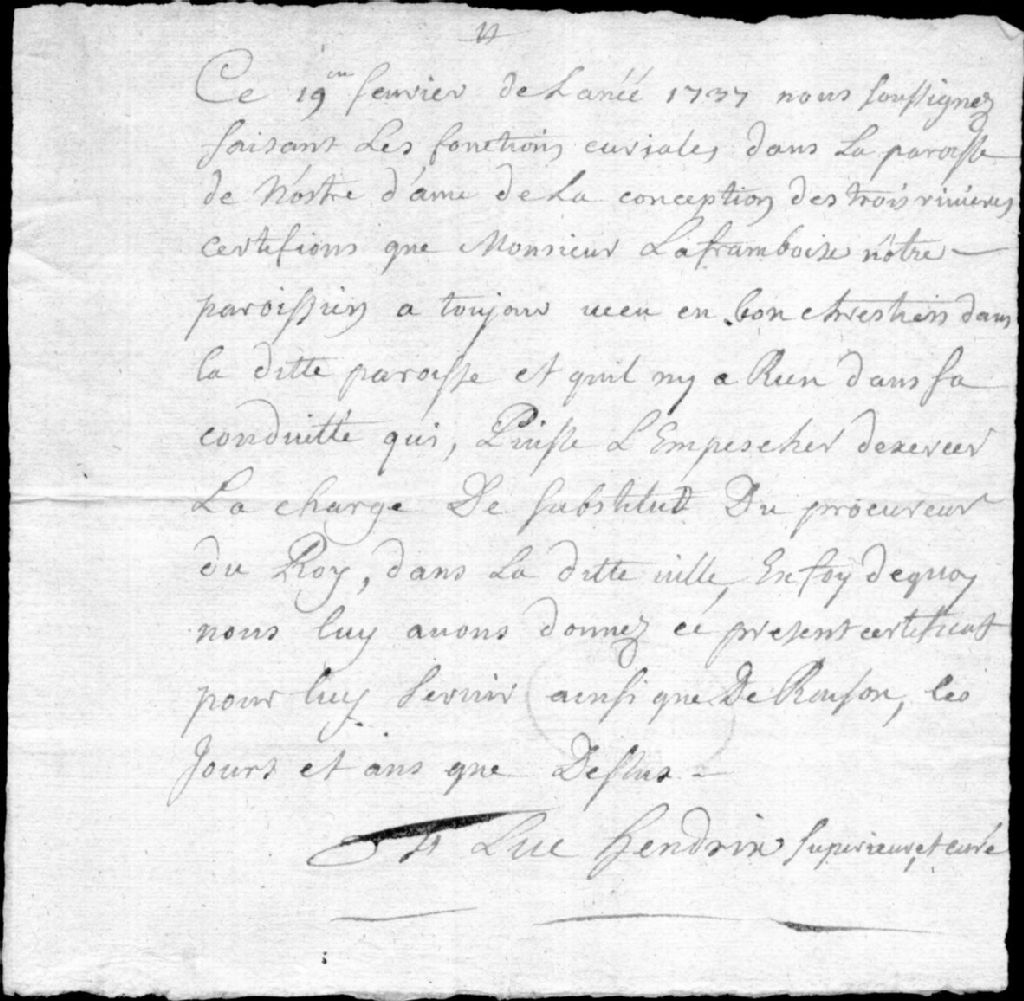 Ce 19em fevrier de Lanéé 1737 nous soussignez
faisant Les fonctions curiales dans La paroisse
de Nostre d'ame de La conception des trois rivieres
certifions que Monsieur Laframboise nôtre
paroissien a toujour vecu en bon chrestien dans
la ditte paroisse et quil ny a Rien dans sa
conduitte qui, Puisse L'Empescher dexercer
La charge De substitut Du procureur
du Roy, dans La ditte ville, En foy dequoy
nous luy avons donnez cé present certificat
pour luy servir ainsi que De Raison, les
Jours et ans que Dessus
Luc hendrix superieur, et curé